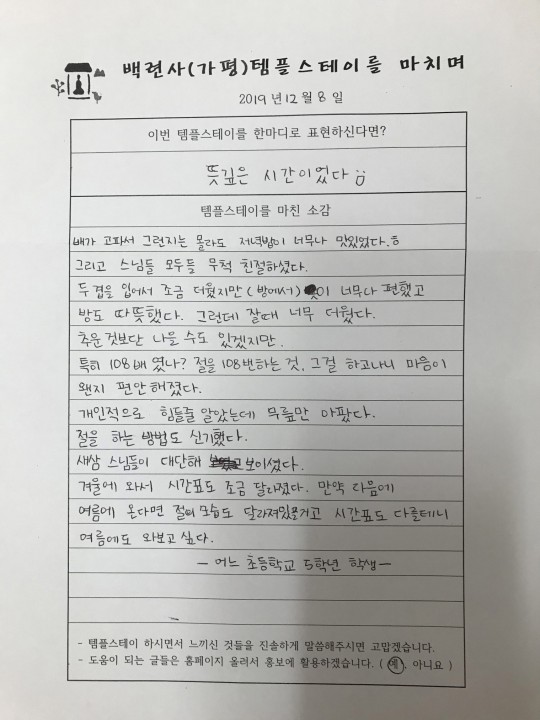 백련사(가평)템플스테이를 마치며
2019년 12월 8일
이번 템플스테이를 한마디로 표현하신다면?
뜻깊은 시간이었다
템플스테이를 마친 소감
배가 고파서 그런지는 몰라도 저녁밥이 너무나 맛있었다.ㅎ
그리고 스님들 모두들 무척 친절하셨다.
두 겹을 입어서 조금 더웠지만(방에서) 옷이 너무나 편했고
방도 따뜻했다. 그런데 잘때 너무 더웠다.
추운것보단 나을 수도 있겠지만.
특히 108배 였나? 절을 108번하는 것, 그걸 하고나니 마음이
왠지 편안해졌다.
개인적으로 힘들줄 알았는데 무릎만 아팠다.
절을 하는 방법도 신기했다.
새삼 스님들이 대단해 보이셨다.
겨울에 와서 시간표도 조금 달라졌다. 만약 다음에
여름에 온다면 절의 모습도 달라져있을거고 시간표도 다를테니
여름에도 와보고 싶다.
- 어느 초등학교 5학년 학생 -
- 템플스테이 하시면서 느끼신 것들을 진솔하게 말씀해주시면 고맙겠습니다.
- 도움이 되는 글들은 홈페이지 올려서 홍보에 활용하겠습니다. ( 예, 아니요 )